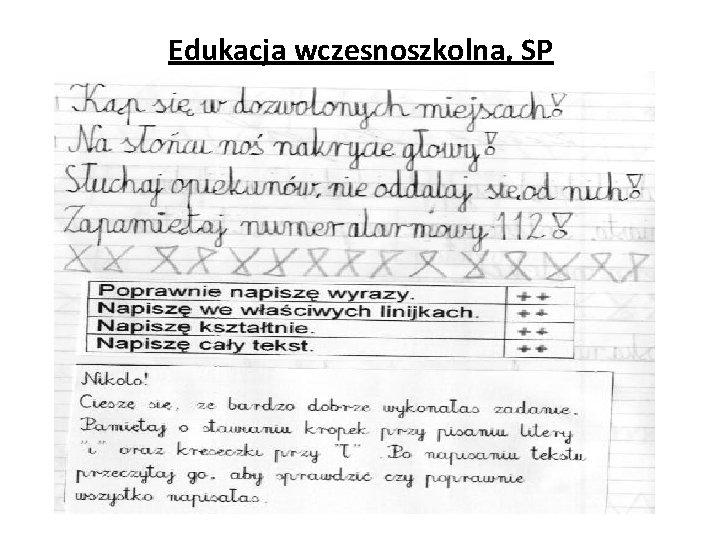 Edukacja wczesnoszkolna, SP
Kąp się w dozwolonych miejscach!
Na słońcu noś nakrycie głowy!
Słuchaj opiekunów, nie oddalaj sie od nich!
Zapamiętaj numer alarmowy 112!
Poprawnie napiszę wyrazy. ++
Napiszę we właściwych linijkach. ++
Napiszę kształtnie. ++
Napiszę cały tekst. ++
Nikolo!
Cieszę się, że bardzo dobrze wykonałaś zadanie.
Pamiętaj o stawianiu kropek przy pisaniu litery
"i" oraz kreseczki przy "ł". Po napisaniu tekstu
przeczytaj go, aby sprawdzić czy poprawnie
wszystko napisałaś.